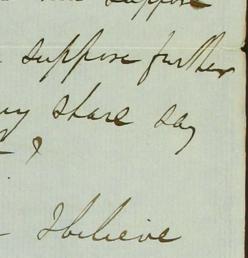 suppose
suppose further
my share say
?
I believe